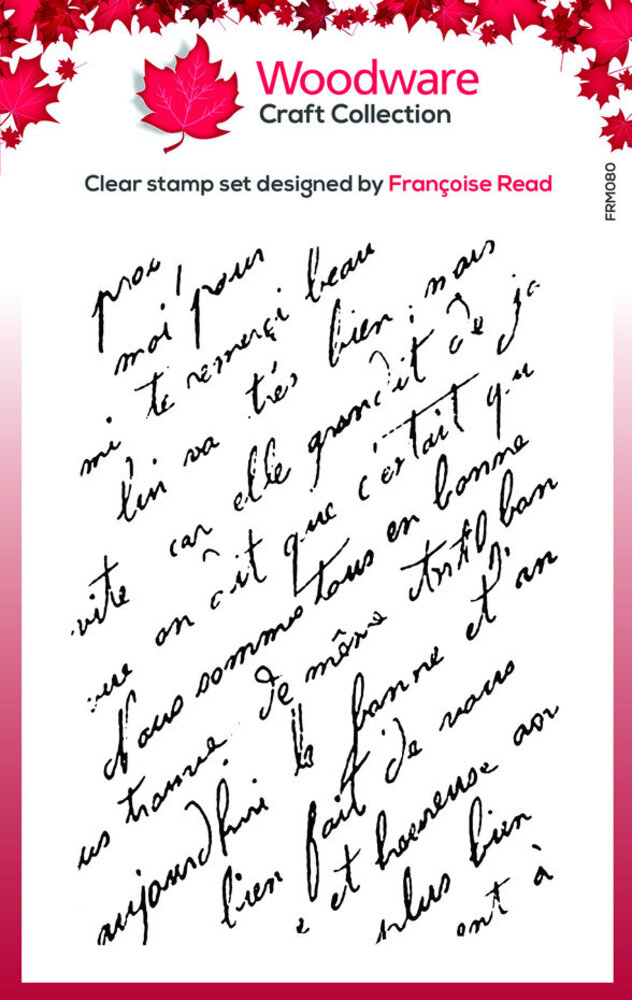 Woodware
Craft Collection
Clear stamp set designed by Françoise Read
FRM080
moi, pour
mi te remerci beau
va très bien, nous
vite car elle grandit de ja
on dit que c'était qu
Nous sommes tous en bonne
us trouve de même
aujourd'hui la bonne et d'un
bien fait de vous
e et heureuse
plus bien
ent à